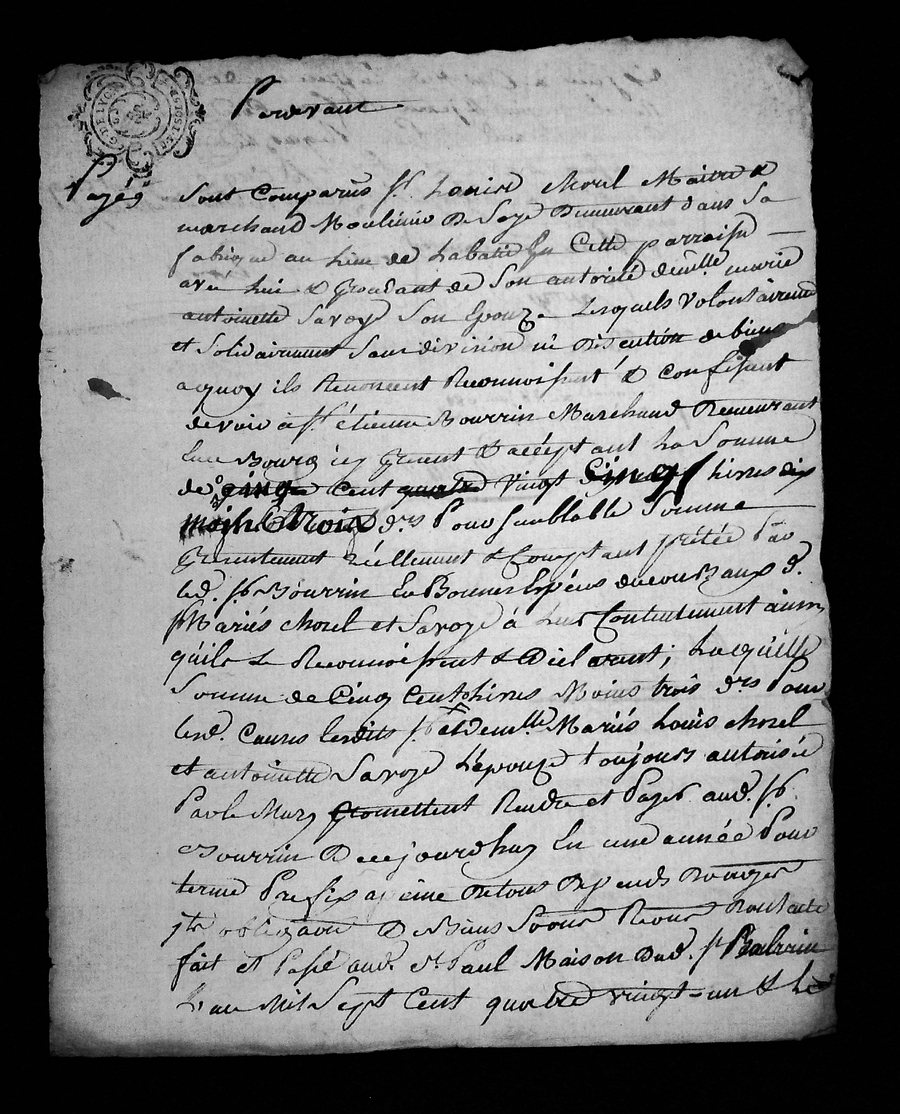 G. DE LYON
Pardevant
Payé
Sont Comparus Sr. Louis Chorel Maitre &
marchand Moulinier De Soye Demeurant dans Sa
fabrique au Lieu de Labatie En Cette parroisse
avec Lui & procédant de Son autorité demlle marie
antoinette Savoye Son Epouze Lesquels Volontairement
et Solidairement Sans division ni discution de biens
aquoy ils Renoncent Reconnoissent & Confessent
devoir à Sr. étienne Bourrin Marchand Demeurant
au Bourg icy présent & acceptant La Somme
de cinq Cent quatre Vingt Cinq Livres dix
moins trois drs Pour Semblable Somme
présentement réellement & Comptant prêtée Par
led. Sr. Bourrin En Bonnes Espèces de cours aux d.
Sr Mariés Chorel et Savoye à Leur Contentement ainsy
qu'ils Le Reconnoissent & Déclarent; Laquelle
Somme de Cinq Cent Livres Moins trois drs Pour
lesd. Causes Lesdits Sr. et demlle Mariés Louis Chorel
et antoinette Savoye L'épouze toujours autorisée
Par le Mary promettent Rendre et Payer aud. Sr.
Bourrin De cejourdhuy En une année Pour
terme Prefix a peine De tous Dépends Domages
obligeant & Biens Soumis Renon Dont acte
fait et Passé aud. St. Paul Maison Dud. Sr
L'an Mil Sept Cent quatre vingt-un & Le